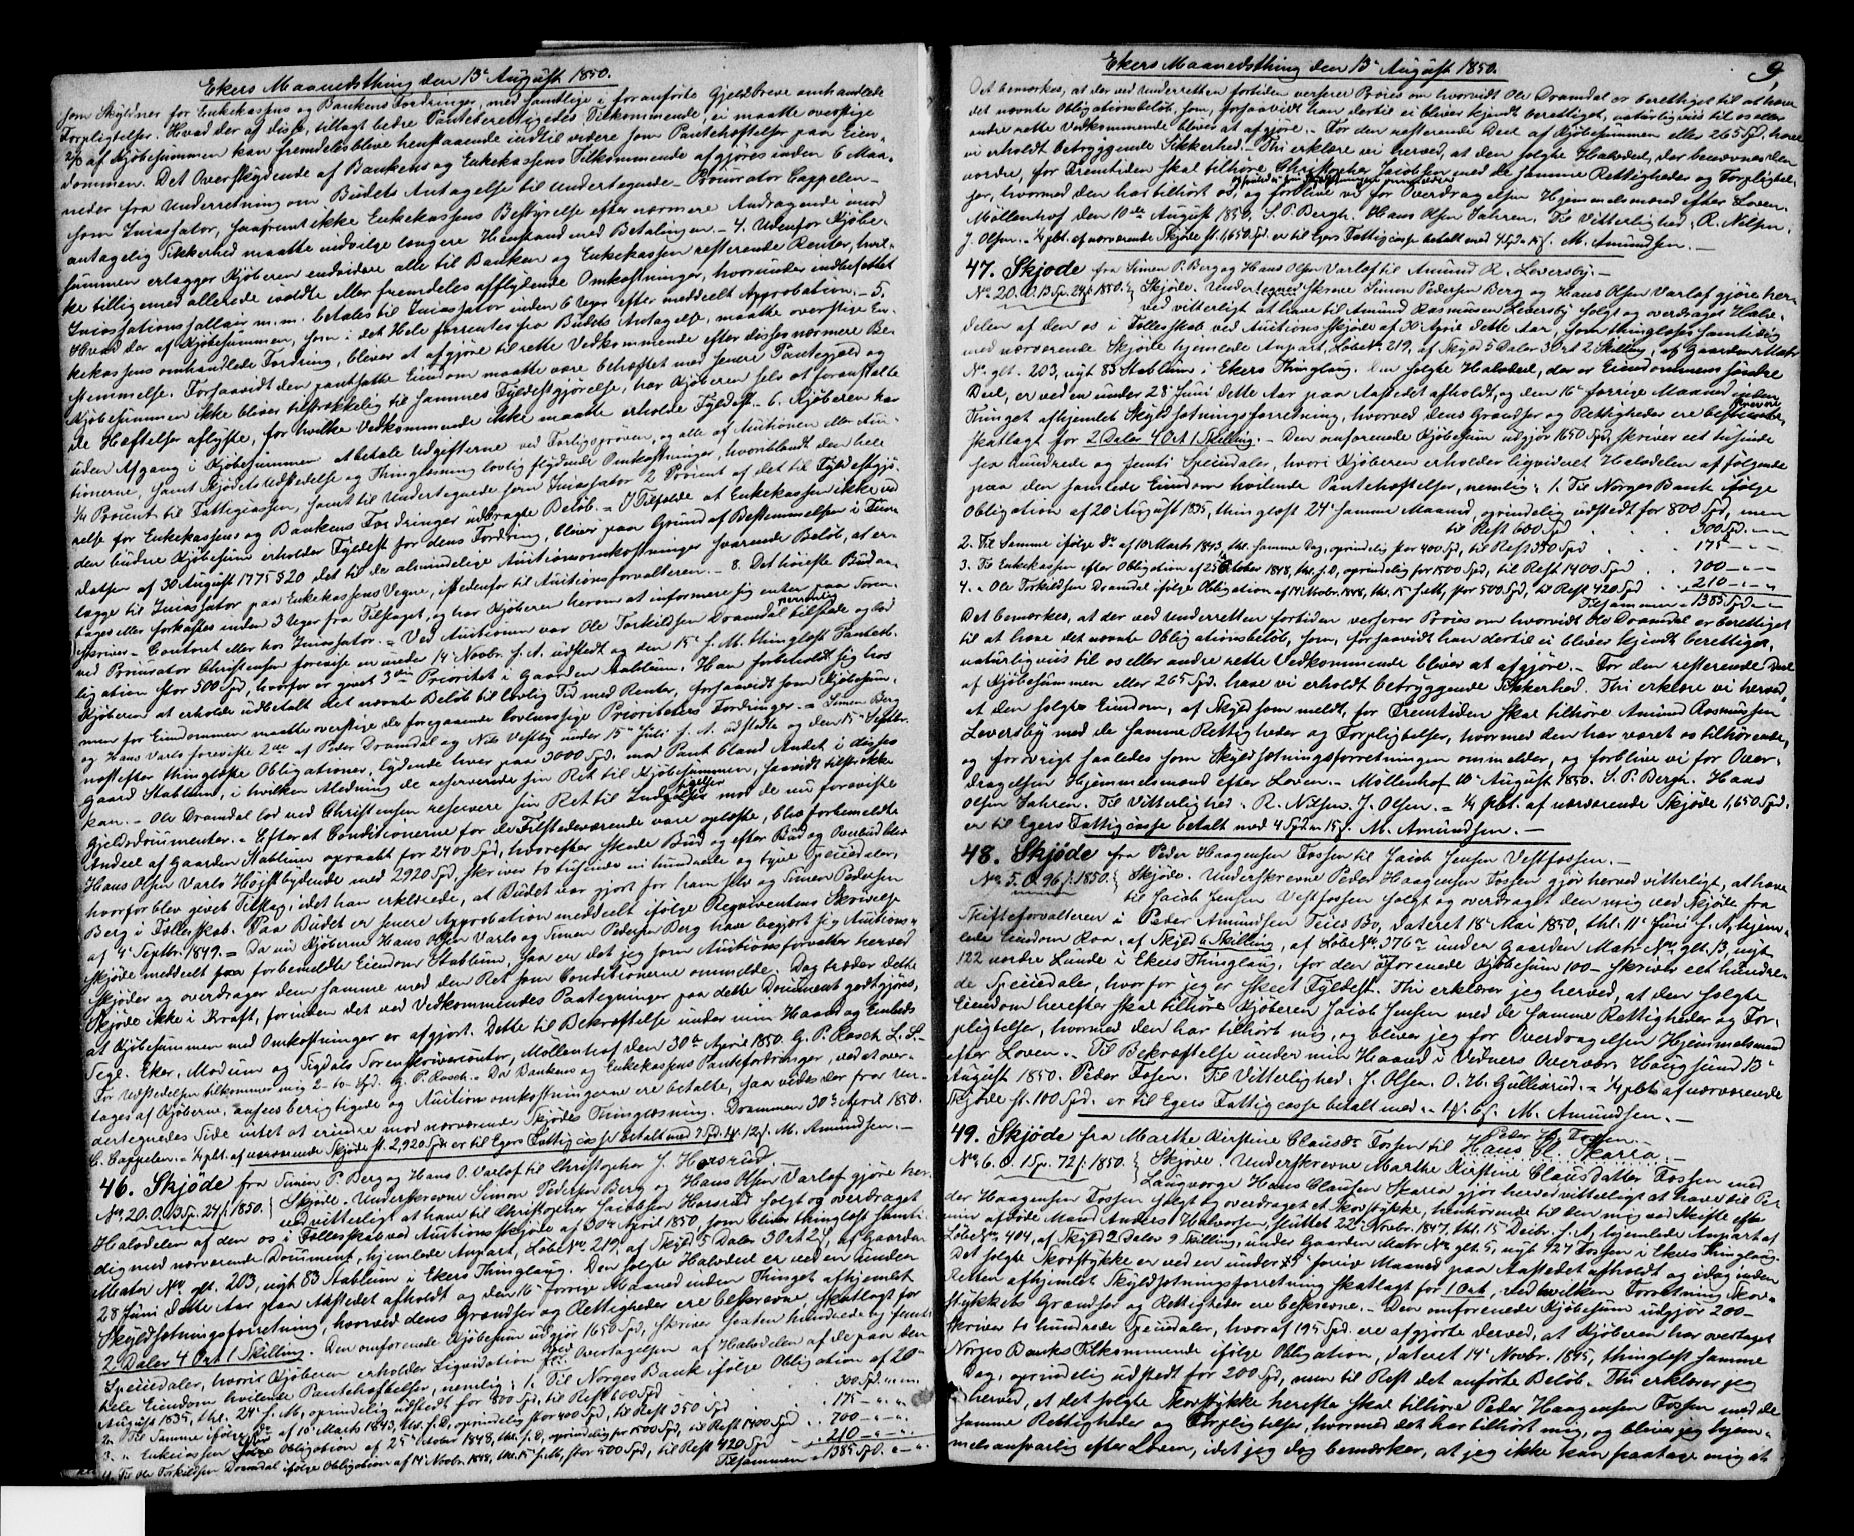 Ekers Maanedsthing den 13de August 1850.
som Skyldner for Enkekassens og Bankens Fordringer, med samtlige i foranførte Gjeldsbreve omhandlede
Forpligtelser. Hvad der af disse, tillagt bedre Panteberettigedes Tilkommende, ei maatte overstige
2/3 af Kjøbesummen kan fremdeles blive henstaaende indtil videre som Pantehæftelser paa Eien-
dommen. Det Overskydende af Bankens og Enkekassens Tilkommende afgjøres inden 6 Maa-
neder fra Underretning om Budets Antagelse til Undertegnede Procurator Cappelen
som Incassator, saafremt ikke Enkekassens Bestyrelse efter nærmere Andragende mod
antagelig Sikkerhed maatte indvilge længere Henstand med Betalingen. - 4. Udenfor Kjøbe-
summen erlægger Kjøberen endvidere alle til Banken og Enkekassen resterende Renter, hvil-
ke tilligemed allerede ivoldte eller fremdeles afflydende Omkostninger, hvorunder indbefattet
Incassationssallair m.m. betales til Incassator inden 6 Uger efter meddeelt Approbation. - 5.
Hvad der af Kjøbesummen, som i det Hele forrentes fra Budets Antagelse, maatte overstige En-
kekassens omhandlede Fordring, bliver at afgjøre til rette Vedkommende efter disses nærmere Be-
stemmelse. Forsaavidt den pantsatte Eiendom maatte være behæftet med senere Pantegjæld og
Kjøbesummen ikke bliver tilstrækkelig til sammes Fyldestgjørelse, har Kjøberen selv at foranstalte
de Hæftelser aflyste, for hvilke Vedkommende ikke maatte erholde Fyldest. - 6. Kjøberen har
uden Afgang i Kjøbesummen at betale Udgifterne ved Forligsprøven, og alle af Auctionen eller Auc-
tionerne, samt Skjødets Udstedelse og Thinglæsning lovlig flydende Omkostninger, hvoriblandt den hele
1/4 Procent til Fattigcassen, samt til Undertegnede som Incassator 2 Procent af det til Fyldestgjø-
relse for Enkekassens og Bankens Fordringer udbragte Beløb. - 7. I Tilfælde at Enkekassen ikke ved
den budne Kjøbesum erholder Fyldest for dens Fordring, bliver paa Grund af Bestemmelsen i Fun-
datsen af 30 August 1775 § 20 det til de almindelige Auctionsomkostninger svarende Beløb, at er-
lægge til Incassator paa Enkekassens Vegne, istedenfor til Auctionsforvalteren. - 8. Det høieste Bud an-
tages eller forkastes inden 3 Uger fra Tilslaget, og har Kjøberen herom at informere sig enten paa Soren-
skriver-Contoret eller hos Incassator. - Ved Auctionen var Ole Torkildsen Dramdal personlig tilstede og lod
ved Procurator Christensen forevise en under 14 Novbr. f. A. udstedt og den 15 s. M. thinglæst Panteob-
ligation stor 500 Spd, hvorfor er givet 3die Prioritet i Gaarden Stablum. Han forbeholdt sig hos
Kjøberen at erholde udbetalt det nævnte Beløb til lovlig Tid med Renter, forsaavidt som Kjøbesum-
men for Eiendommen maatte overstige de foregaaende lovmæssige Prioriteters Fordringer. - Simen Berg
og Hans Varlo foreviste 2de af Peder Dramdal og Nils Vestby under 15 Juli f. A. udstedte og den 15 Septbr.
næstefter thinglæste Obligationer, lydende hver paa 3000 Spd, mod Pant bland Andet i disses
Gaard Stablum, i hvilken Anledning de reserverede sin Ret til Kjøbesummen, saavidt tilstrække
kan. - Ole Dramdal lod ved Christensen reservere sin Ret til Indsigelser mod de nu foreviste
Gjeldsdocumenter. - Efterat Conditionerne for de Tilstedeværende vare oplæste, blev forbemeldte
Andeel af Gaarden Stablum opraabt for 2400 Spd, hvorefter skede Bud og efter Bud og Overbud blev
Hans Olsen Varlo Høistbydende med 2920 Spd, skriver to tusinde ni hundrede og tyve Speciedaler,
hvorfor blev givet Tilslag, idet han erklærede, at Budet var gjort for ham selv og Simen Pedersen
Berg i Fælleskab. Paa Budet er senere Approbation meddeelt ifølge Requirentens Skrivelse
af 4 Septbr. 1849. = Da nu Kjøberne Hans Olsen Varlo og Simen Pedersen Berg have begjært sig Auctions-
skjøde meddeelt paa forbemeldte Eiendom Stablum, saa er det jeg som Auctionsforvalter herved
skjøder og overdrager dem samme med den Ret som Conditionerne ommelde. Dog træder dette
Skjøde ikke i Kraft, forinden det ved Vedkommendes Paategninger paa dette Document godtgjøres,
at Kjøbesummen med Omkostninger er afgjort. Dette til Bekræftelse under min Haand og Embeds
Segl. Eker, Modum og Sigdals Sorenskrivercontor, Møllenhof den 30te April 1850. G. P. Rasch. L. S. -
For Udstedelsen tilkommer mig 2-60 Spd. G. P. Rasch. - Da Bankens og Enkekassens Pantefordringer, ved at over-
tages af Kjøberne, ansees berigtigede og Auctionsomkostningerne ere betalte, saa vides der fra Un-
dertegnedes Side intet at erindre mod nærværende Skjødes Thinglæsning. Drammen 30 April 1850.
C. Cappelen. - 1/4 pCt. af nærværende Skjøde st. 2,920 Spd. er til Egers Fattigcasse betalt med 7 Spd. 1 # 12 s. M. Amundsen. -
46. Skjøde fra Simen P. Berg og Hans O. Varlof til Christopher J. Horsrud.
No. 20. O. 13 Sp. 24 s. 1850. } Skjøde. Underskrevne Simon Pedersen Berg og Hans Olsen Varlof gjøre her-
ved vitterligt at have til Christopher Jacobsen Horsrud solgt og overdraget
Halvdelen af den os i Fælleskab ved Auctionsskjøde af 30te April 1850, som bliver thinglæst samti-
dig med nærværende Document, hjemlede Anpart, Løbe No. 219, af Skyld 5 Daler 3 Ort 2 s, af Gaarden
Matr. No. glt. 203, nyt 83 Stablum i Ekers Thinglaug. Den solgte Halvdeel er ved en under
28 Juni dette Aar paa Aastedet afholdt og den 16 forrige Maaned inden Thinget afhjemlet
Skyldsætningsforretning, hvorved dens Grændser og Rettigheder ere beskrevne, skatlagt for
2 Daler 4 Ort 1 Skilling. Den omforenede Kjøbesum udgjør 1650 Spd, skriver sexten hundrede og femti
Speciedaler, hvori Kjøberen erholder Liqvidation ved Overtagelsen af Halvdelen af de paa den
hele Eiendom hvilende Pantehæftelser, nemlig: 1. Til Norges Bank ifølge Obligation af 20
August 1835, thl. 24 s. M, oprindelig udstedt for 800 Spd, til Rest 600 Spd . . . 300 Spd. " "
2. Til Samme ifølge do. af 10 Marts 1843, thl. s. D, oprindelig stor 400 Spd, til Rest 350 Spd . . . 175 - " - "
3. " Enkecassen efter Obligation af 25 October 1848, thl. s. D, oprindelig for 1500 Spd, til Rest 1400 Spd . . 700 - " - "
4. Til Ole Torkildsen Dramdal ifølge Obligation af 14 Novbr. 1848, thl. 15 s. M, stor 500 Spd, til Rest 420 Spd . . 210 - " - "
Tilsammen 1385 Spd. " - "
Ekers Maanedsthing den 13de August 1850.
9
Det bemærkes, at der ved Underretten fortiden verserer Proces om hvorvidt Ole Dramdal er berettiget til at have
det nævnte Obligationsbeløb, som, forsaavidt han dertil ei bliver kjendt berettiget, naturligviis til os eller
andre rette Vedkommende bliver at afgjøre. - For den resterende Deel af Kjøbesummen eller 265 Spd, have
vi erholdt betryggende Sikkerhed. - Thi erklære vi herved, at den solgte Halvdeel, der benævnes den
nordre, for Fremtiden skal tilhøre Christopher Jacobsen med de samme Rettigheder og Forpligtel-
ser, hvormed den har tilhørt os, og forblive vi for Overdragelsen Hjemmelsmænd efter Loven.
Möllenhof den 10de August 1850. S. P. Bergh. Hans Olsen Jahren. Til Vitterlighed: R. Nilsen.
J. Olsen. - 1/4 pCt. af nærværende Skjøde st. 1,650 Spd. er til Egers Fattigcasse betalt med 4 Spd. " 15 s. M. Amundsen. -
47. Skjøde fra Simen P. Berg og Hans Olsen Varlof til Amund R. Leversby. -
No. 20. O. 13 Spd. 24 s. 1850. } Skjøde. Undertegnede Simon Pedersen Berg og Hans Olsen Varlof gjøre her-
ved vitterligt at have til Amund Rasmussen Leversby solgt og overdraget Halv-
delen af den os i Fælleskab ved Auctions Skjøde af 30 April dette Aar, som thinglæses samtidig
med nærværende Skjøde hjemlede Anpart, Løbe No. 219, af Skyld 5 Daler 3 Ort 2 Skilling, af Gaarden Matr.
No. glt. 203, nyt 83 Stablum i Ekers Thinglaug. Den solgte Halvdeel, der er Eiendommens søndre
Deel, er ved en under 28 Juni dette Aar paa Aastedet afholdt, og den 16 forrige Maaned inden
Thinget afhjemlet Skyldsætningsforretning, hvorved dens Grændser og Rettigheder ere beskrevne,
skatlagt for 2 Daler 4 Ort 1 Skilling. - Den omforenede Kjøbesum udgjør 1650 Spd, skriver eet tusinde
sex hundrede og femti Speciedaler, hvori Kjøberen erholder liqvideret Halvdelen af følgende
paa den samlede Eiendom hvilende Pantehæftelser, nemlig: 1. Til Norges Bank ifølge
Obligation af 20 August 1835, thinglæst 24 samme Maaned, oprindelig udstedt for 800 Spd, men
til Rest 600 Spd . . . 300 Spd. " "
2. Til Samme ifølge do. af 10 Marts 1843, thl. samme Dag, oprindelig stor 400 Spd, til Rest 350 Spd . . . 175 - " "
3. Til Enkekassen efter Obligation af 25 October 1848, thl. s. D, oprindelig for 1500 Spd, til Rest 1400 Spd . . 700 - " "
4. " Ole Torkildsen Dramdal ifølge Obligation af 14 Novbr. 1848, thl. 15 s. Mth, stor 500 Spd, til Rest 420 Spd . . 210 - " "
Tilsammen 1385 Spd " "
Det bemærkes, at der ved Underretten fortiden verserer Proces om hvorvidt Ole Dramdal er berettiget
til at have det nævnte Obligationsbeløb, som, forsaavidt han dertil ei bliver kjendt berettiget,
naturligviis til os eller andre rette Vedkommende bliver at afgjøre. - For den resterende Deel
af Kjøbesummen eller 265 Spd. have vi erholdt betryggende Sikkerhed. Thi erklære vi herved,
at den solgte Eiendom, af Skyld som meldt, for Fremtiden skal tilhøre Amund Rasmussen
Leversby med de samme Rettigheder og Forpligtelser, hvormed den har været os tilhørende,
og forøvrigt saaledes som Skyldsætningsforretningen ommelder, og forblive vi for Over-
dragelsen Hjemmelsmænd efter Loven. - Møllenhof 10 August 1850. S. P. Bergh. Hans
Olsen Jahren. Til Vitterlighed: R. Nilsen. J. Olsen. = 1/4 pCt. af nærværende Skjøde 1,650 Spd.
er til Egers Fattigcasse betalt med 4 Spd. " 15 s. M. Amundsen. -
48. Skjøde fra Peder Haagensen Fossen til Jacob Jensen Vestfossen. -
No. 5. O. 96 s. 1850. } Skjøde. Underskrevne Peder Haagensen Fossen gjør herved vitterligt, at have
til Jacob Jensen Vestfossen solgt og overdraget den mig ved Skjøde fra
Skifteforvalteren i Peder Amundsen Teies Bo, dateret 18 Mai 1850, thl. 11 Juni s. A, hjem-
lede Eiendom Roa, af Skyld 6 Skilling, af Løbe No. 376 a under Gaarden Matr. No. glt. 13, nyt
122 nordre Lunde i Ekers Thinglaug, for den omforenede Kjøbesum 100 - skriver eet hundre-
de Speciedaler, hvorfor jeg er skeet Fyldest. Thi erklærer jeg herved, at den solgte
Eiendom herefter skal tilhøre Kjøberen Jacob Jensen med de samme Rettigheder og For-
pligtelser, hvormed den har tilhørt mig, og bliver jeg for Overdragelsen Hjemmelsmand
efter Loven. - Til Bekræftelse under min Haand i Vidners Overvær. Hougsund 13
August 1850. Peder Fossen. Til Vitterlighed: J. Olsen. O. H. Gulliksrud. = 1/4 pCt. af nærværende
Skjøde st. 100 Spd. er til Egers Fattigcasse betalt med " 1 # 6 s. M. Amundsen. -
49. Skjøde fra Marthe Kirstine Clausdr. Fossen til Peder H. Fossen. -
Hans Cl. Skarra. -
No. 6. O. 1 Sp. 72 s. 1850. } Skjøde. Underskrevne Marthe Kirstine Clausdatter Fossen med
Laugværge Hans Clausen Skarra gjør herved vitterligt at have til Pe-
der Haagensen Fossen solgt og overdraget et Skovstykke, henhørende til den mig ved Skifte efter
min afdøde Mand Anders Halvorsen, sluttet 22 Novbr. 1847, thl. 15 Decbr. s. A, hjemlede Anpart af
Løbe No. 404, af Skyld 2 Daler 9 Skilling, under Gaarden Matr. No. glt. 5, nyt 124 Fossen i Ekers Thinglaug.
Det solgte Skovstykke er ved en under forrige Maaned paa Aastedet afholdt og idag inden
Retten afhjemlet Skyldsætningsforretning skatlagt for 1 Ort, ved hvilken Forretning Skov-
stykkets Grændser og Rettigheder ere beskrevne. - Den omforenede Kjøbesum udgjør 200 -
skriver to hundrede Speciedaler, hvoraf 195 Spd. ere afgjorte derved, at Kjøberen har overtaget
Norges Banks Tilkommende ifølge Obligation, dateret 14 Novbr. 1845, thinglæst samme
Dag, oprindelig udstedt for 200 Spd, men til Rest det anførte Beløb. Thi erklærer jeg
herved, at det solgte Skovstykke herefter skal tilhøre Peder Haagensen Fossen med de
samme Rettigheder og Forpligtelser, hvormed det har tilhørt mig, og bliver jeg hjem-
melsansvarlig efter Loven, idet jeg dog bemærker, at jeg ikke kan paatage mig at